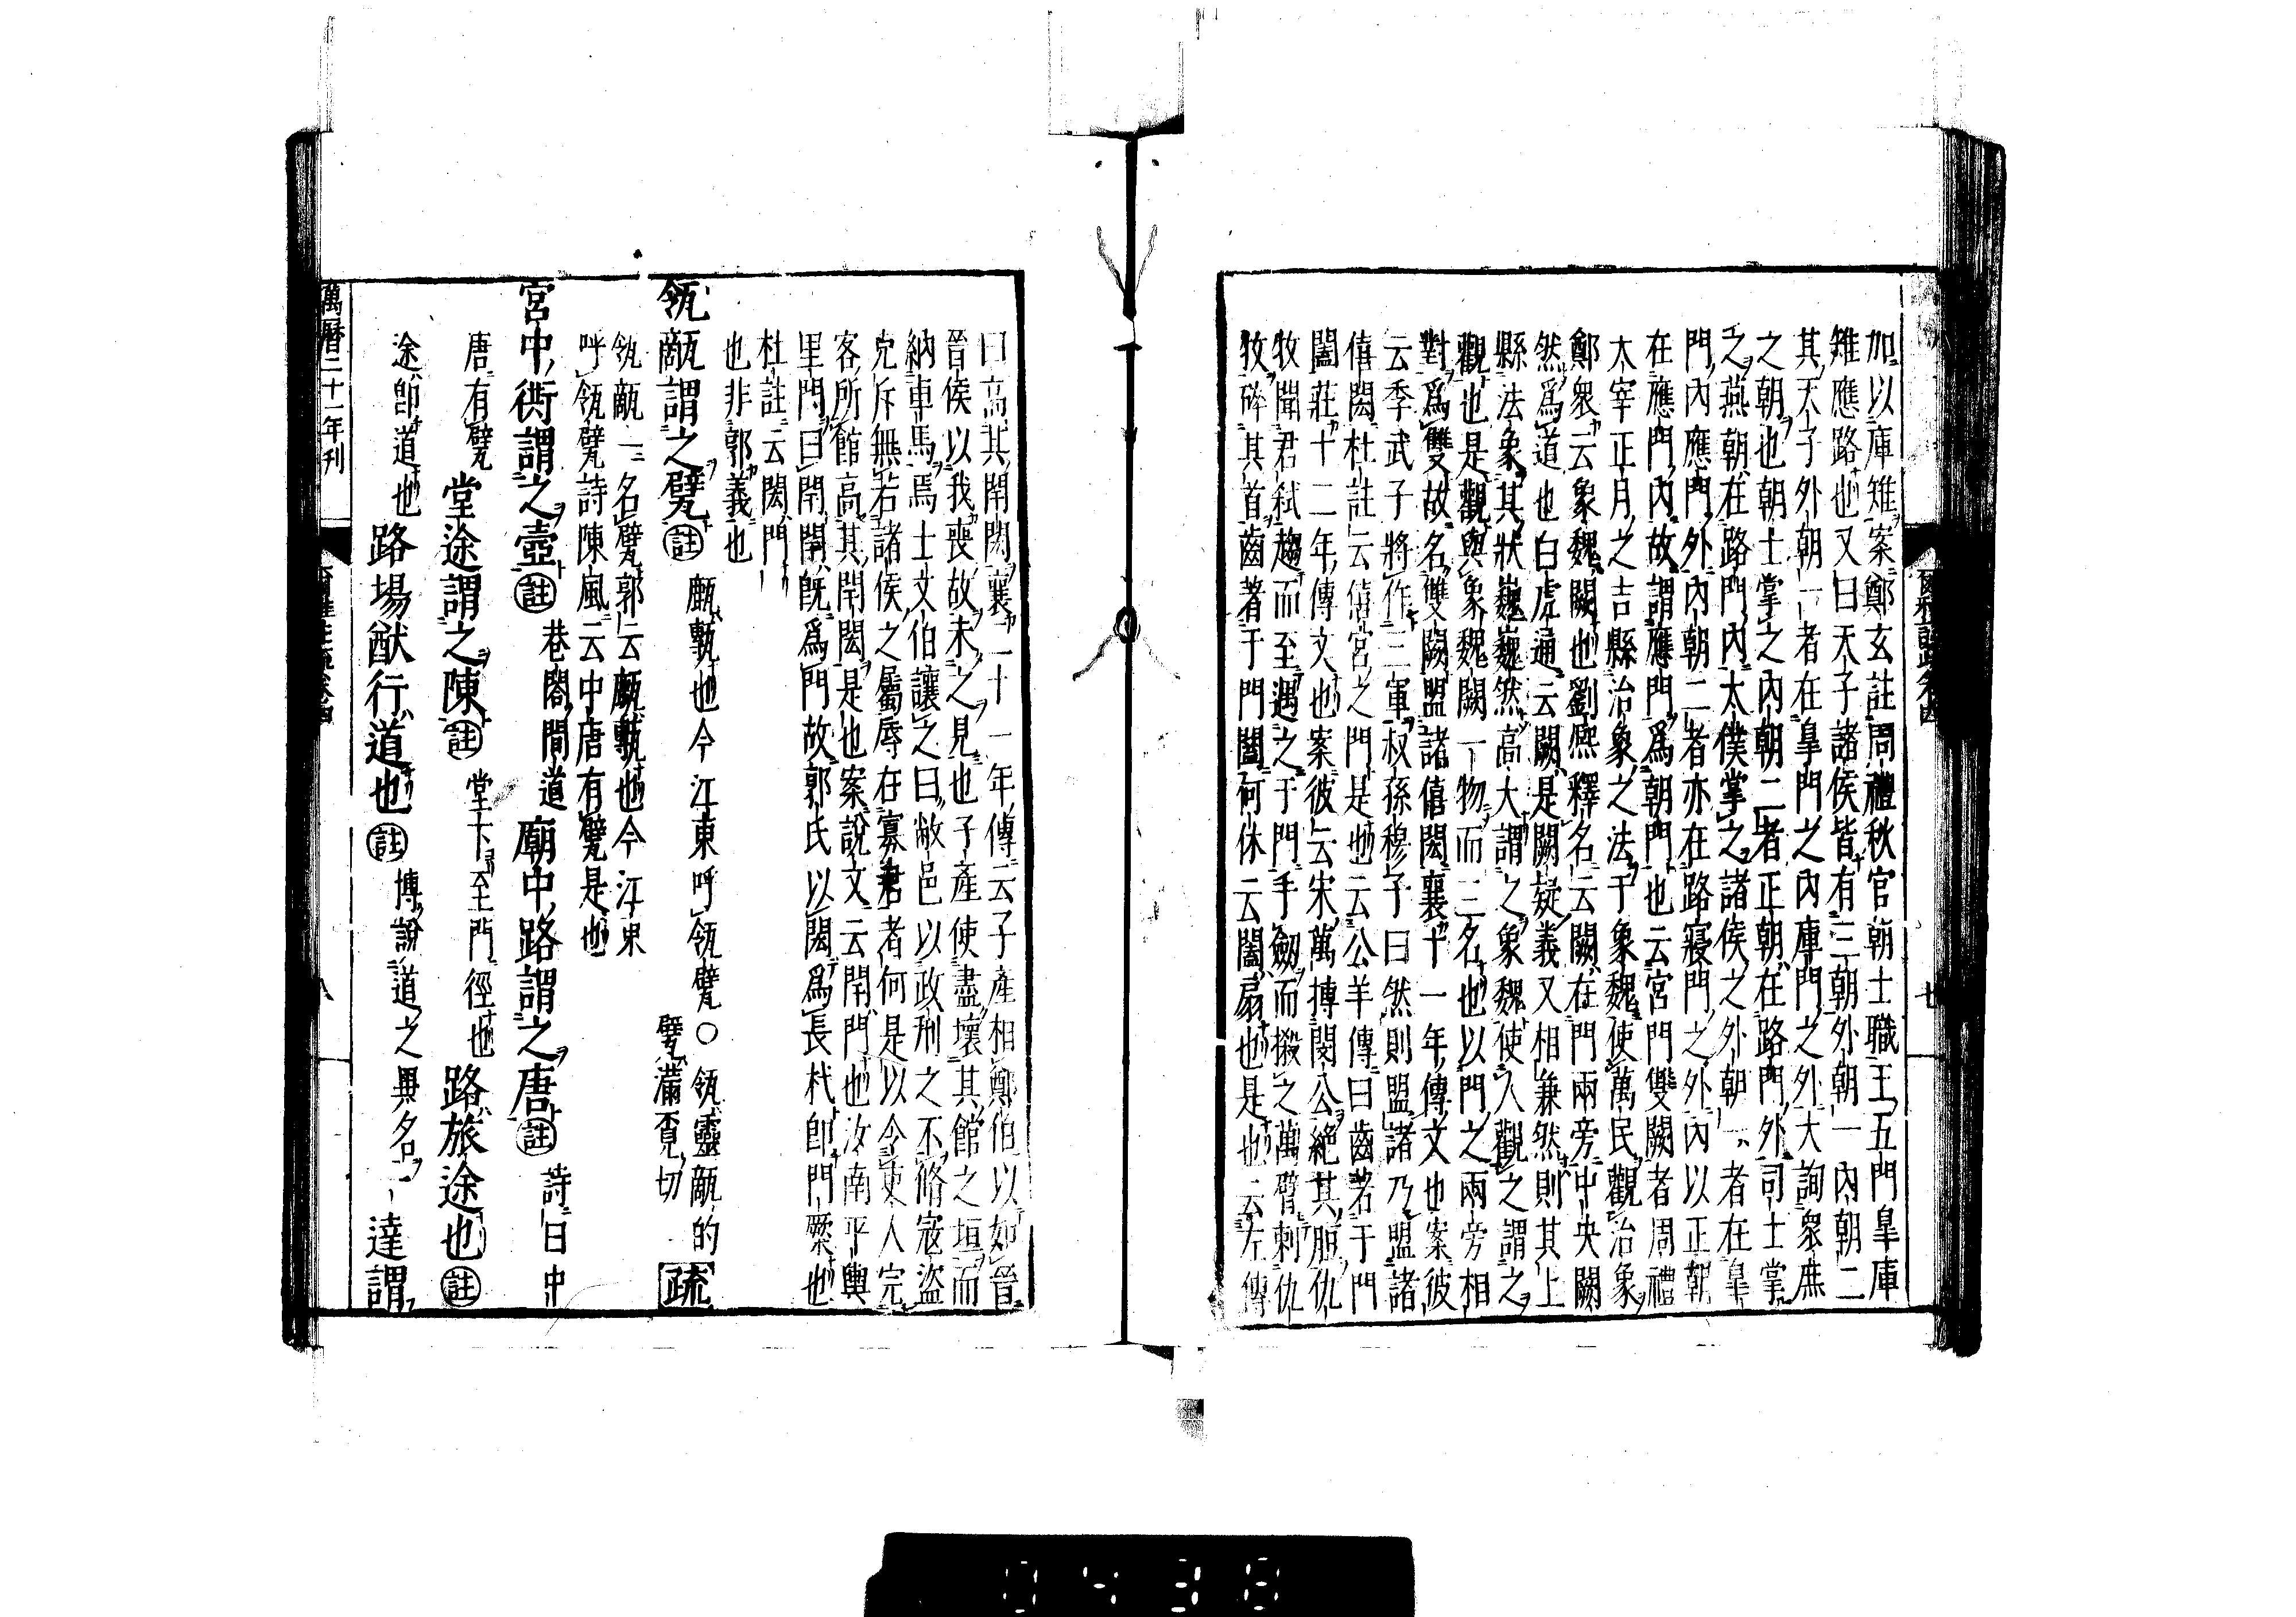 加以庫雉案鄭玄註周禮秋官朝士職王五門皐庫
雉應路也又曰天子諸侯皆有三朝外朝一內朝二
其天子外朝一者在皐門之內庫門之外大詢衆庶
之朝也朝士掌之內朝二者正朝在路門外司士掌
之燕朝在路門內太僕掌之諸侯之外朝一者在皐
門內應門外內朝二者亦在路寢門之外內以正朝
在應門內故謂應門爲朝門也云宮門雙闕者周禮
太宰正月之吉縣治象之法于象魏使萬民觀治象
鄭衆云象魏闕也劉熙釋名云闕在門兩旁中央闕
然爲道也白虎通云闕是闕疑義又相兼然則其上
縣法象其狀巍巍然高大謂之象魏使人觀之謂之
觀也是觀與象魏闕一物而三名也以門之兩旁相
對爲雙故名雙闕盟諸僖閎襄十一年傳文也案彼
云季武子將作三軍叔孫穆子曰然則盟諸乃盟諸
僖閎杜註云僖宮之門是也云公羊傳曰齒著于門
闔莊十二年傳文也案彼云宋萬搏閔公絕其脰仇
牧聞君弒趨而至遇之于門手劒而搬之萬臂刺仇
牧碎其首齒著于門闔何休云闔扇也是也云左傳
曰高其閈閎襄二十一年傳云子產相鄭伯以如晉
晉侯以我喪故未之見也子產使盡壞其館之垣而
納車馬焉士文伯讓之曰敝邑以政刑之不脩寇盜
充斥無若諸侯之屬辱在寡君者何是以令吏人完
客所館高其閈閎是也案說文云閈門也汝南平輿
里門曰閈閈旣爲門故郭氏以閎爲長杙卽門橜也
杜註云閎門
也非郭義也
瓴甋謂之甓註㼾甎也今江東呼瓴甓〇瓴靈甋的甓滿覓切疏
瓴甋一名甓郭云㼾甎也今江東
呼瓴甓詩陳風云中唐有甓是也
宮中衖謂之壼註巷閤間道廟中路謂之唐註詩曰中
唐有甓堂途謂之陳註堂下至門徑也路旅途也註
途卽道也路場猷行道也註博說道之異名一達謂
萬曆二十一年刊
八
七
0438